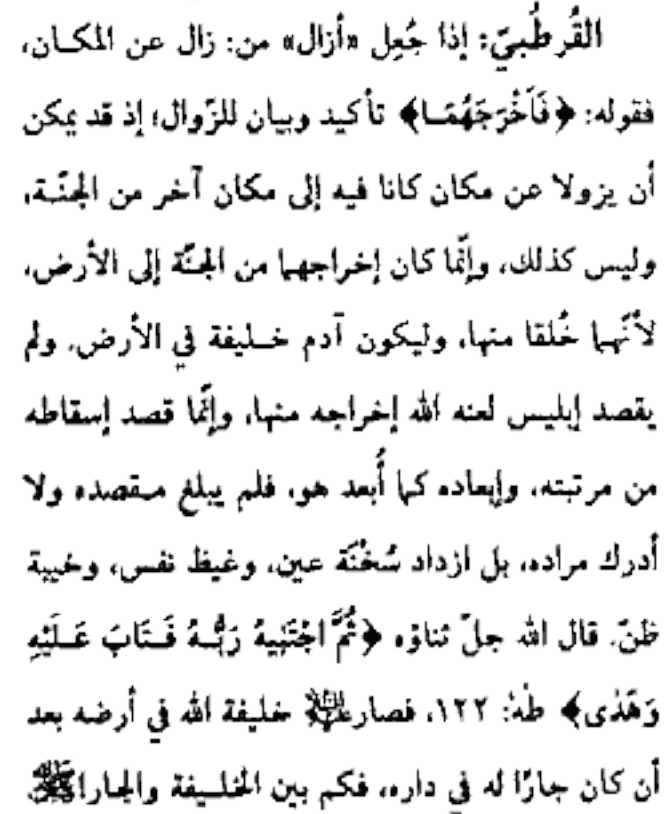 القُرطُبيّ: إذا جُعِل «أزال» من: زال عن المكان،
فقوله: ﴿فَاَخْرَجَهُمَا﴾ تأكيد وبيان للزّوال؛ إذ قد يمكن
أن يزولا عن مكان كانا فيه إلى مكان آخر من الجنّة،
وليس كذلك، وإنّما كان إخراجهما من الجنّة إلى الأرض،
لأنّهما خُلقا منها، وليكون آدم خليفة في الأرض. ولم
يقصد إبليس لعنه الله إخراجه منها، وإنّما قصد إسقاطه
من مرتبته، وإبعاده كما أُبعد هو، فلم يبلغ مقصده ولا
أدرك مراده، بل ازداد سُخْنَة عين، وغيظ نفس، وخيبة
ظنّ. قال الله جلّ ثناؤه ﴿ثُمَّ اجْتَبٰيهُ رَبُّهُ فَتَابَ عَلَيْهِ
وَهَدٰى﴾ طٰهٰ: ١٢٢، فصار عليه السلام خليفة الله في أرضه بعد
أن كان جارًا له في داره، فكم بين الخليفة والجار!